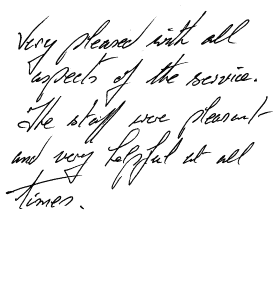 Very pleased with all
aspects of the service.
The staff were pleasant
and very helpful at all
times.